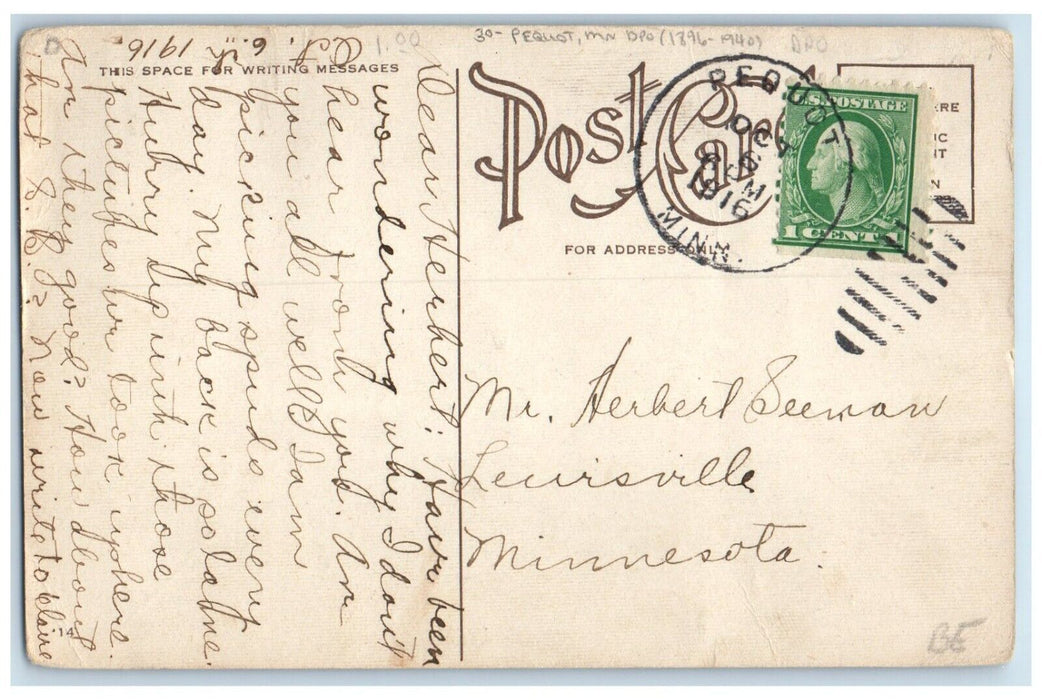 30- PEQUOT, MN DPO (1896-1940) DPO
1.00
D
THIS SPACE FOR WRITING MESSAGES
POST CARD
FOR ADDRESS ONLY
PEQUOT
OCT
6
M
1916
MINN.
U.S. POSTAGE
1 CENT
Oct. 6th 1916.
Dear Herbert; Have been
wondering why I don't
hear from you. Am
you all well? I am
picking spuds every
day. My back is so lame.
Hurry up with those
pictures we took up here.
Are they good? How about
that 8. B.? Now write to Claire
Mr. Herbert Seeman
Lewisville
Minnesota.
14
BE